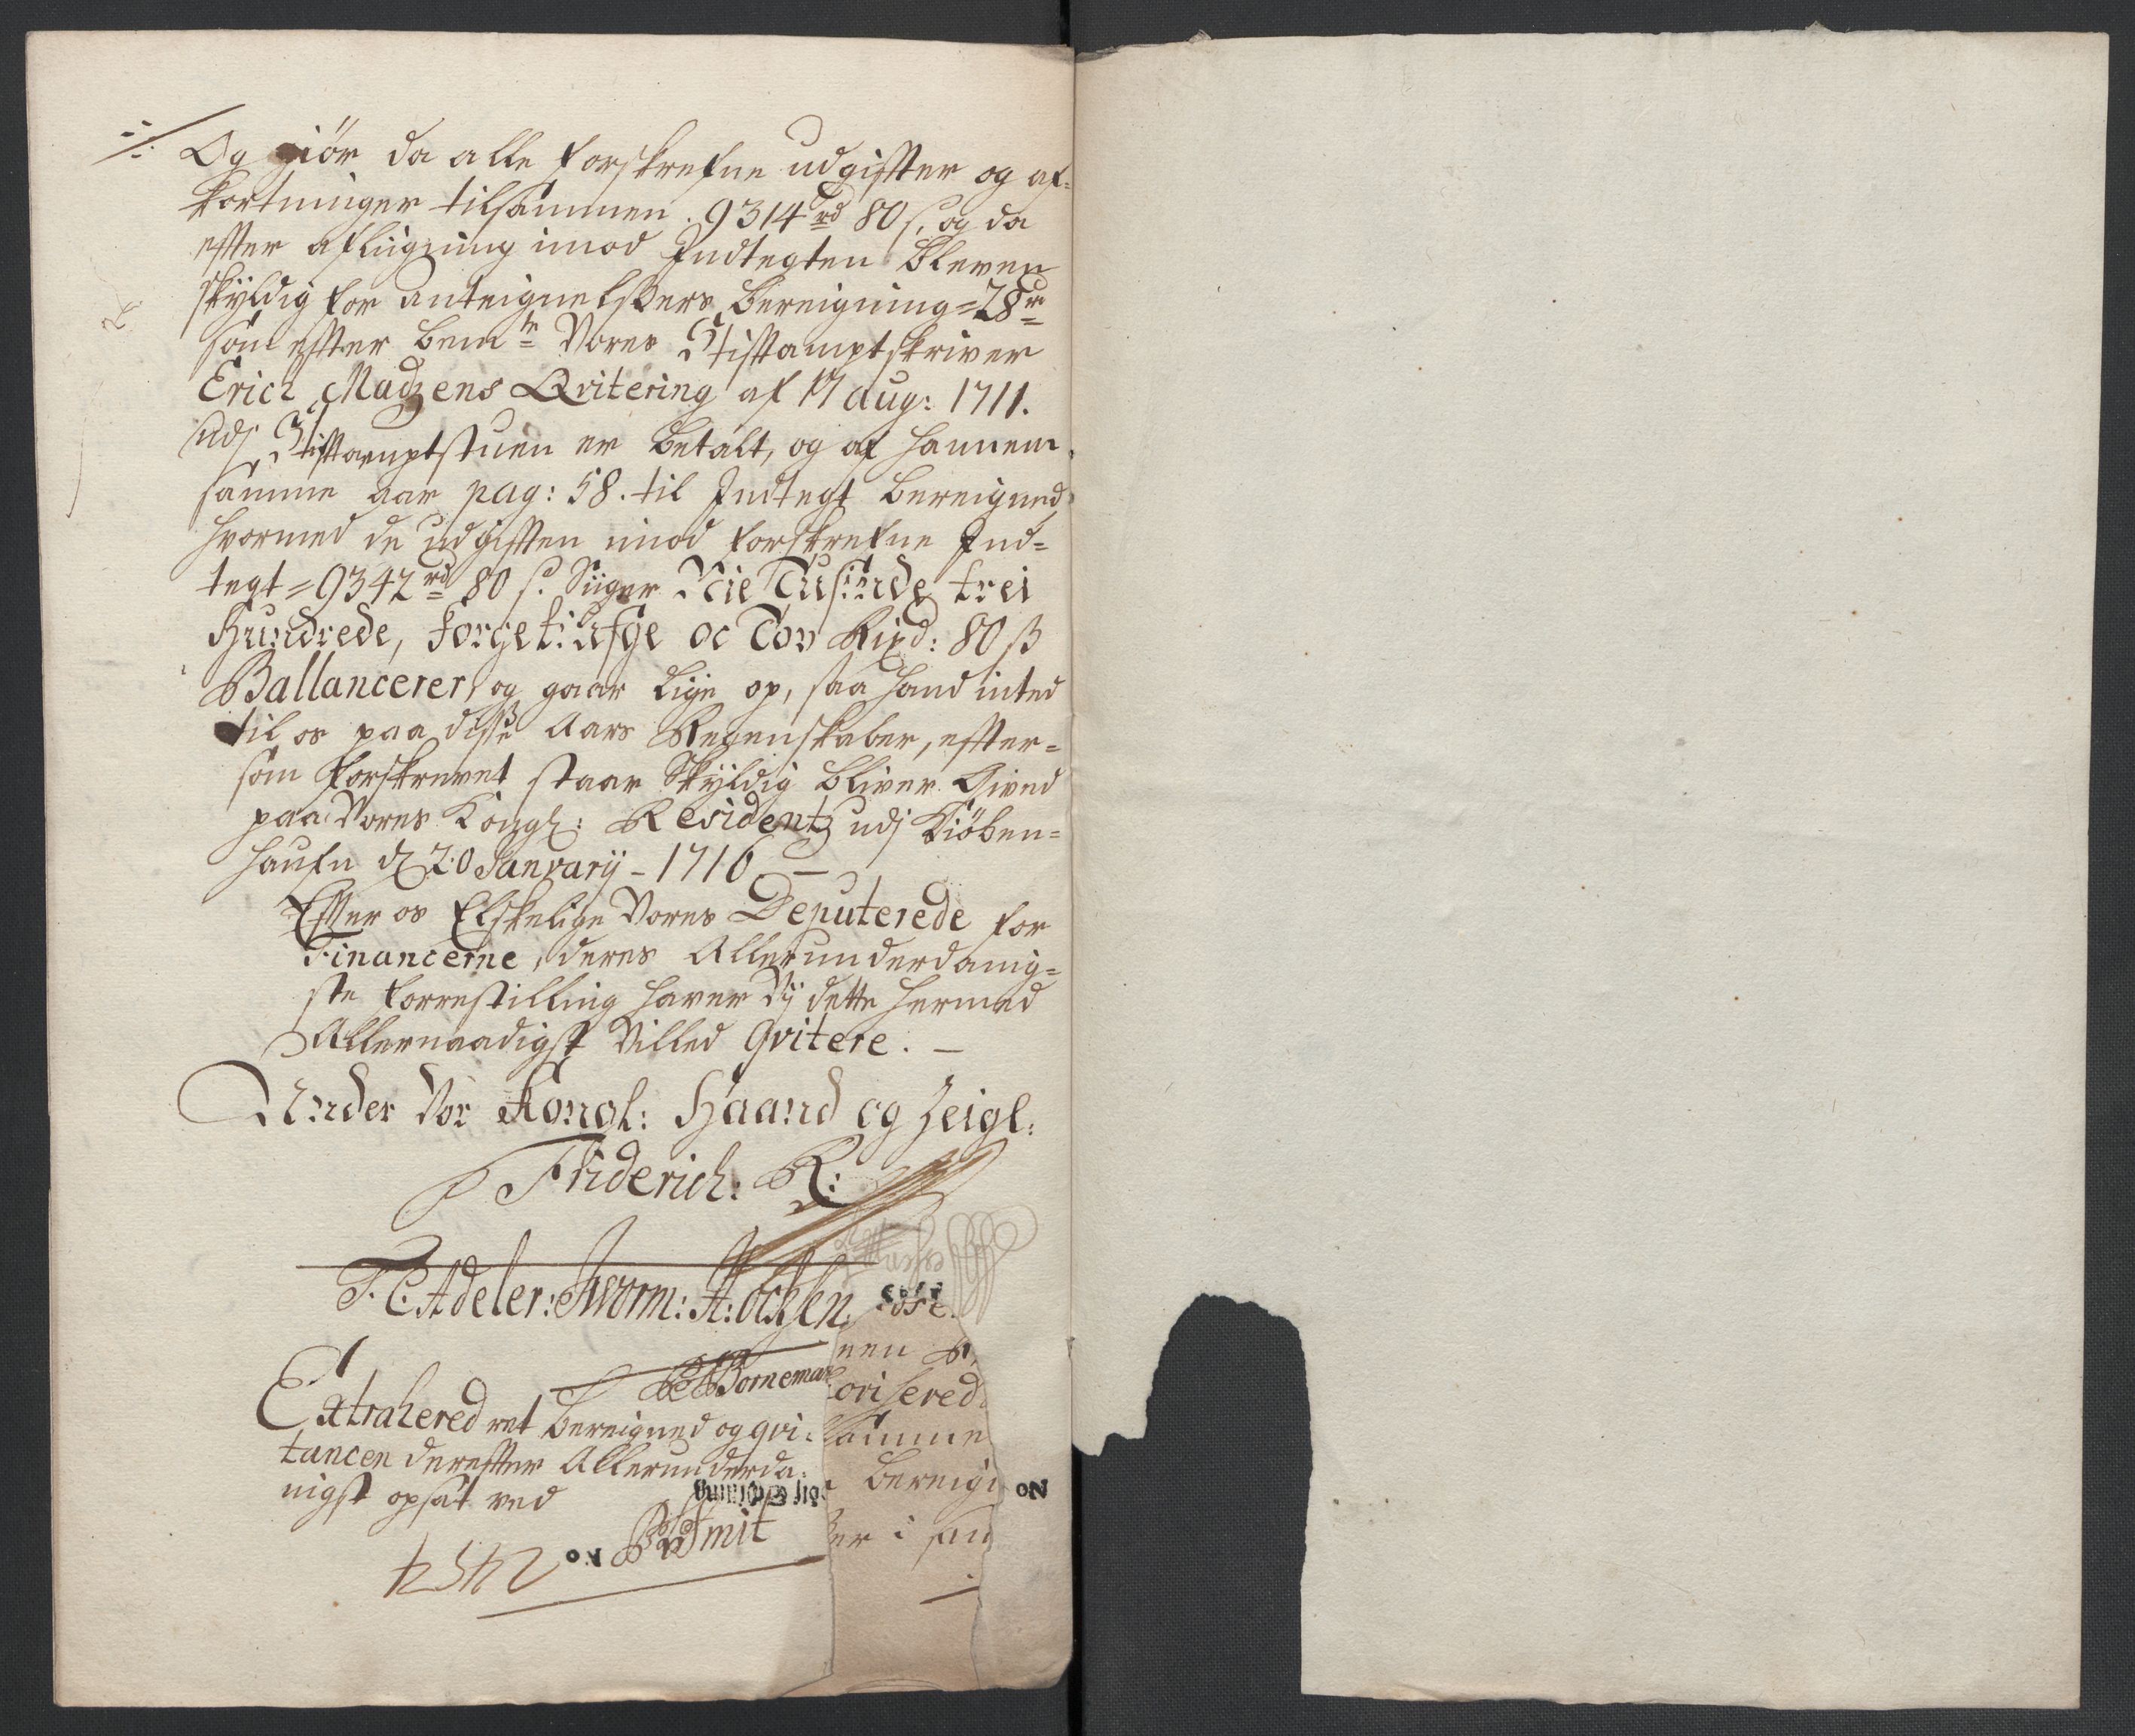 Og giör da alle forskrefne udgiffter og af-
kortninger tilsammen. 9314 rd 80 s. og da
effter afliigning imod Indtegten bleven
skyldig for anteignelsers bereigning = 28 rd
som effter bemte Vores Stifftamptskriver
Erich Madzens Qvitering af 17 aug: 1711.
udj Stifftamptstuen er betalt, og af hannem
samme aar pag: 58. til Indtegt bereigned,
hvormed de udgifften imod forskrefne Ind-
tegt = 9342 rd 80 s. Siiger Nie Tusinde trei
Hundrede, Forgetiufge oc Tov Rixd: 80 ß
Ballancerer, og gaar lige op, saa hand inted
til os paa disse Aars Regenskaber, effter-
som forskrevet staar Skyldig bliver. Gived
paa Vores Kongl: Residentz udj Kiöben-
hafn d 20 Janvarij - 1716. —
Effter os Elskelige Vores Deputerede for
Financerne, deres Allerunderdanig-
ste forrestilling haver Vj dette hermed
Allernaadigst Villed Qvitere. —
Under Vor Kongl: Haand og Zeigl:
Friderich: R:
F. C. Adeler: J Worm: A: Ocksen.
nen
Borneman
orisered
Extrahered ret bereigned og qvi-
samme
tancen dereffter Allerunderda-
bereig
nigst opsat ved
No
Smit
er i